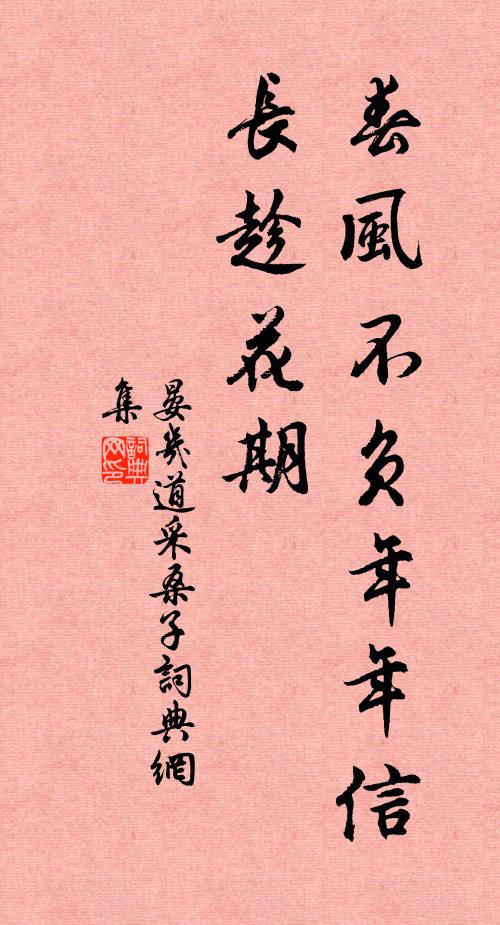 春風不負年年信
長趁花期
晏幾道采桑子詞典網
集
詞典
网印